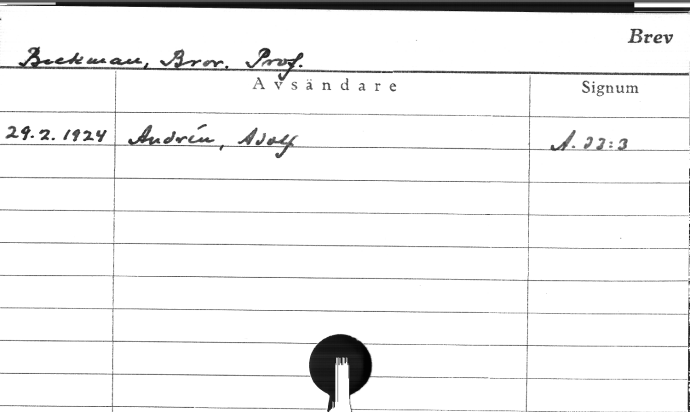 Brev
Beckman, Bror. Prof.
Avsändare Signum
29.2.1924 Andrén, Adolf A. 33:3